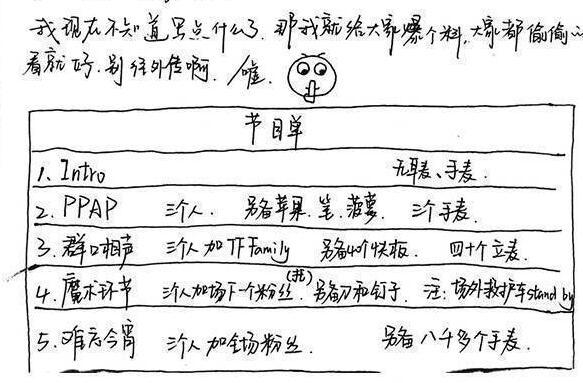 我现在不知道写点什么了,那我就给大家爆个料,大家都偷偷
看就好,别往外传啊,嘘
节目单
1. Intro 无耳麦、手麦.
2. PPAP 三个人. 另备苹果.笔.菠萝. 三个手麦.
3. 群口相声 三个人加TFfamily 另备40个快板. 四十个立麦.
4. 魔术环节 三个人加场下一个粉丝(托).另备刀和钉子. 注:场外救护车stand by
5. 难忘今宵 三个人加全场粉丝. 另备八千多个手麦.